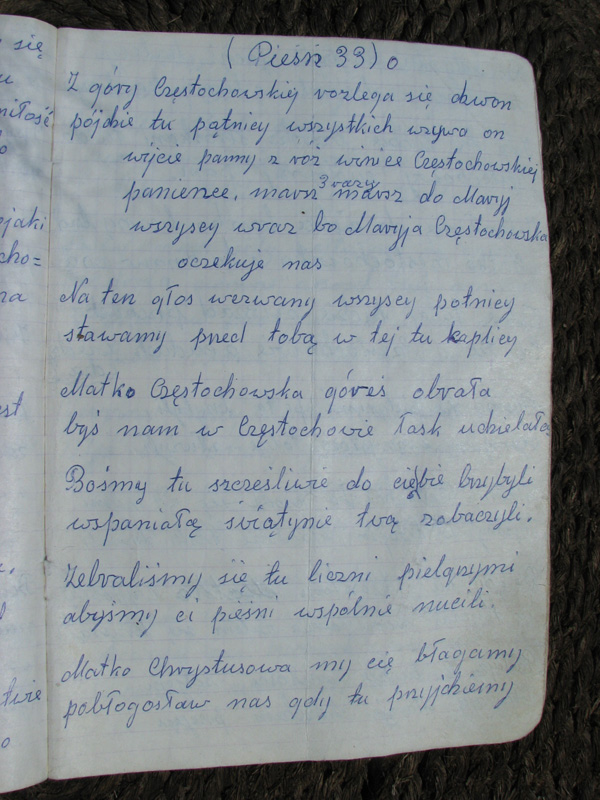 się
u
miłość
o
( Pieśń 33) o
Z góry Częstochowskiej rozlega się dzwon
pójdzie tu pątnicy wszystkich wzywa on
wijcie panny z róż wieńce Częstochowskiej
3 razy
panience, marsz marsz do Maryj
wszyscy wraz bo Maryja Częstochowska
oczekuje nas
Na ten głos wezwany wszyscy potnicy
stawamy przed tobą w tej tu kaplicy
Matko Częstochowska góreś obrała
byś nam w Częstochowie łask udzielała
Bośmy tu szcześliwie do ciebie brzybyli
wspaniałą świątynie twą zobaczyli.
Zebraliśmy się tu liczni pielgrzymi
abyśmy ci pieśni wspólnie nucili.
Matko Chrystusowa my cię błagamy
pobłogosław nas gdy tu przyjdziemy